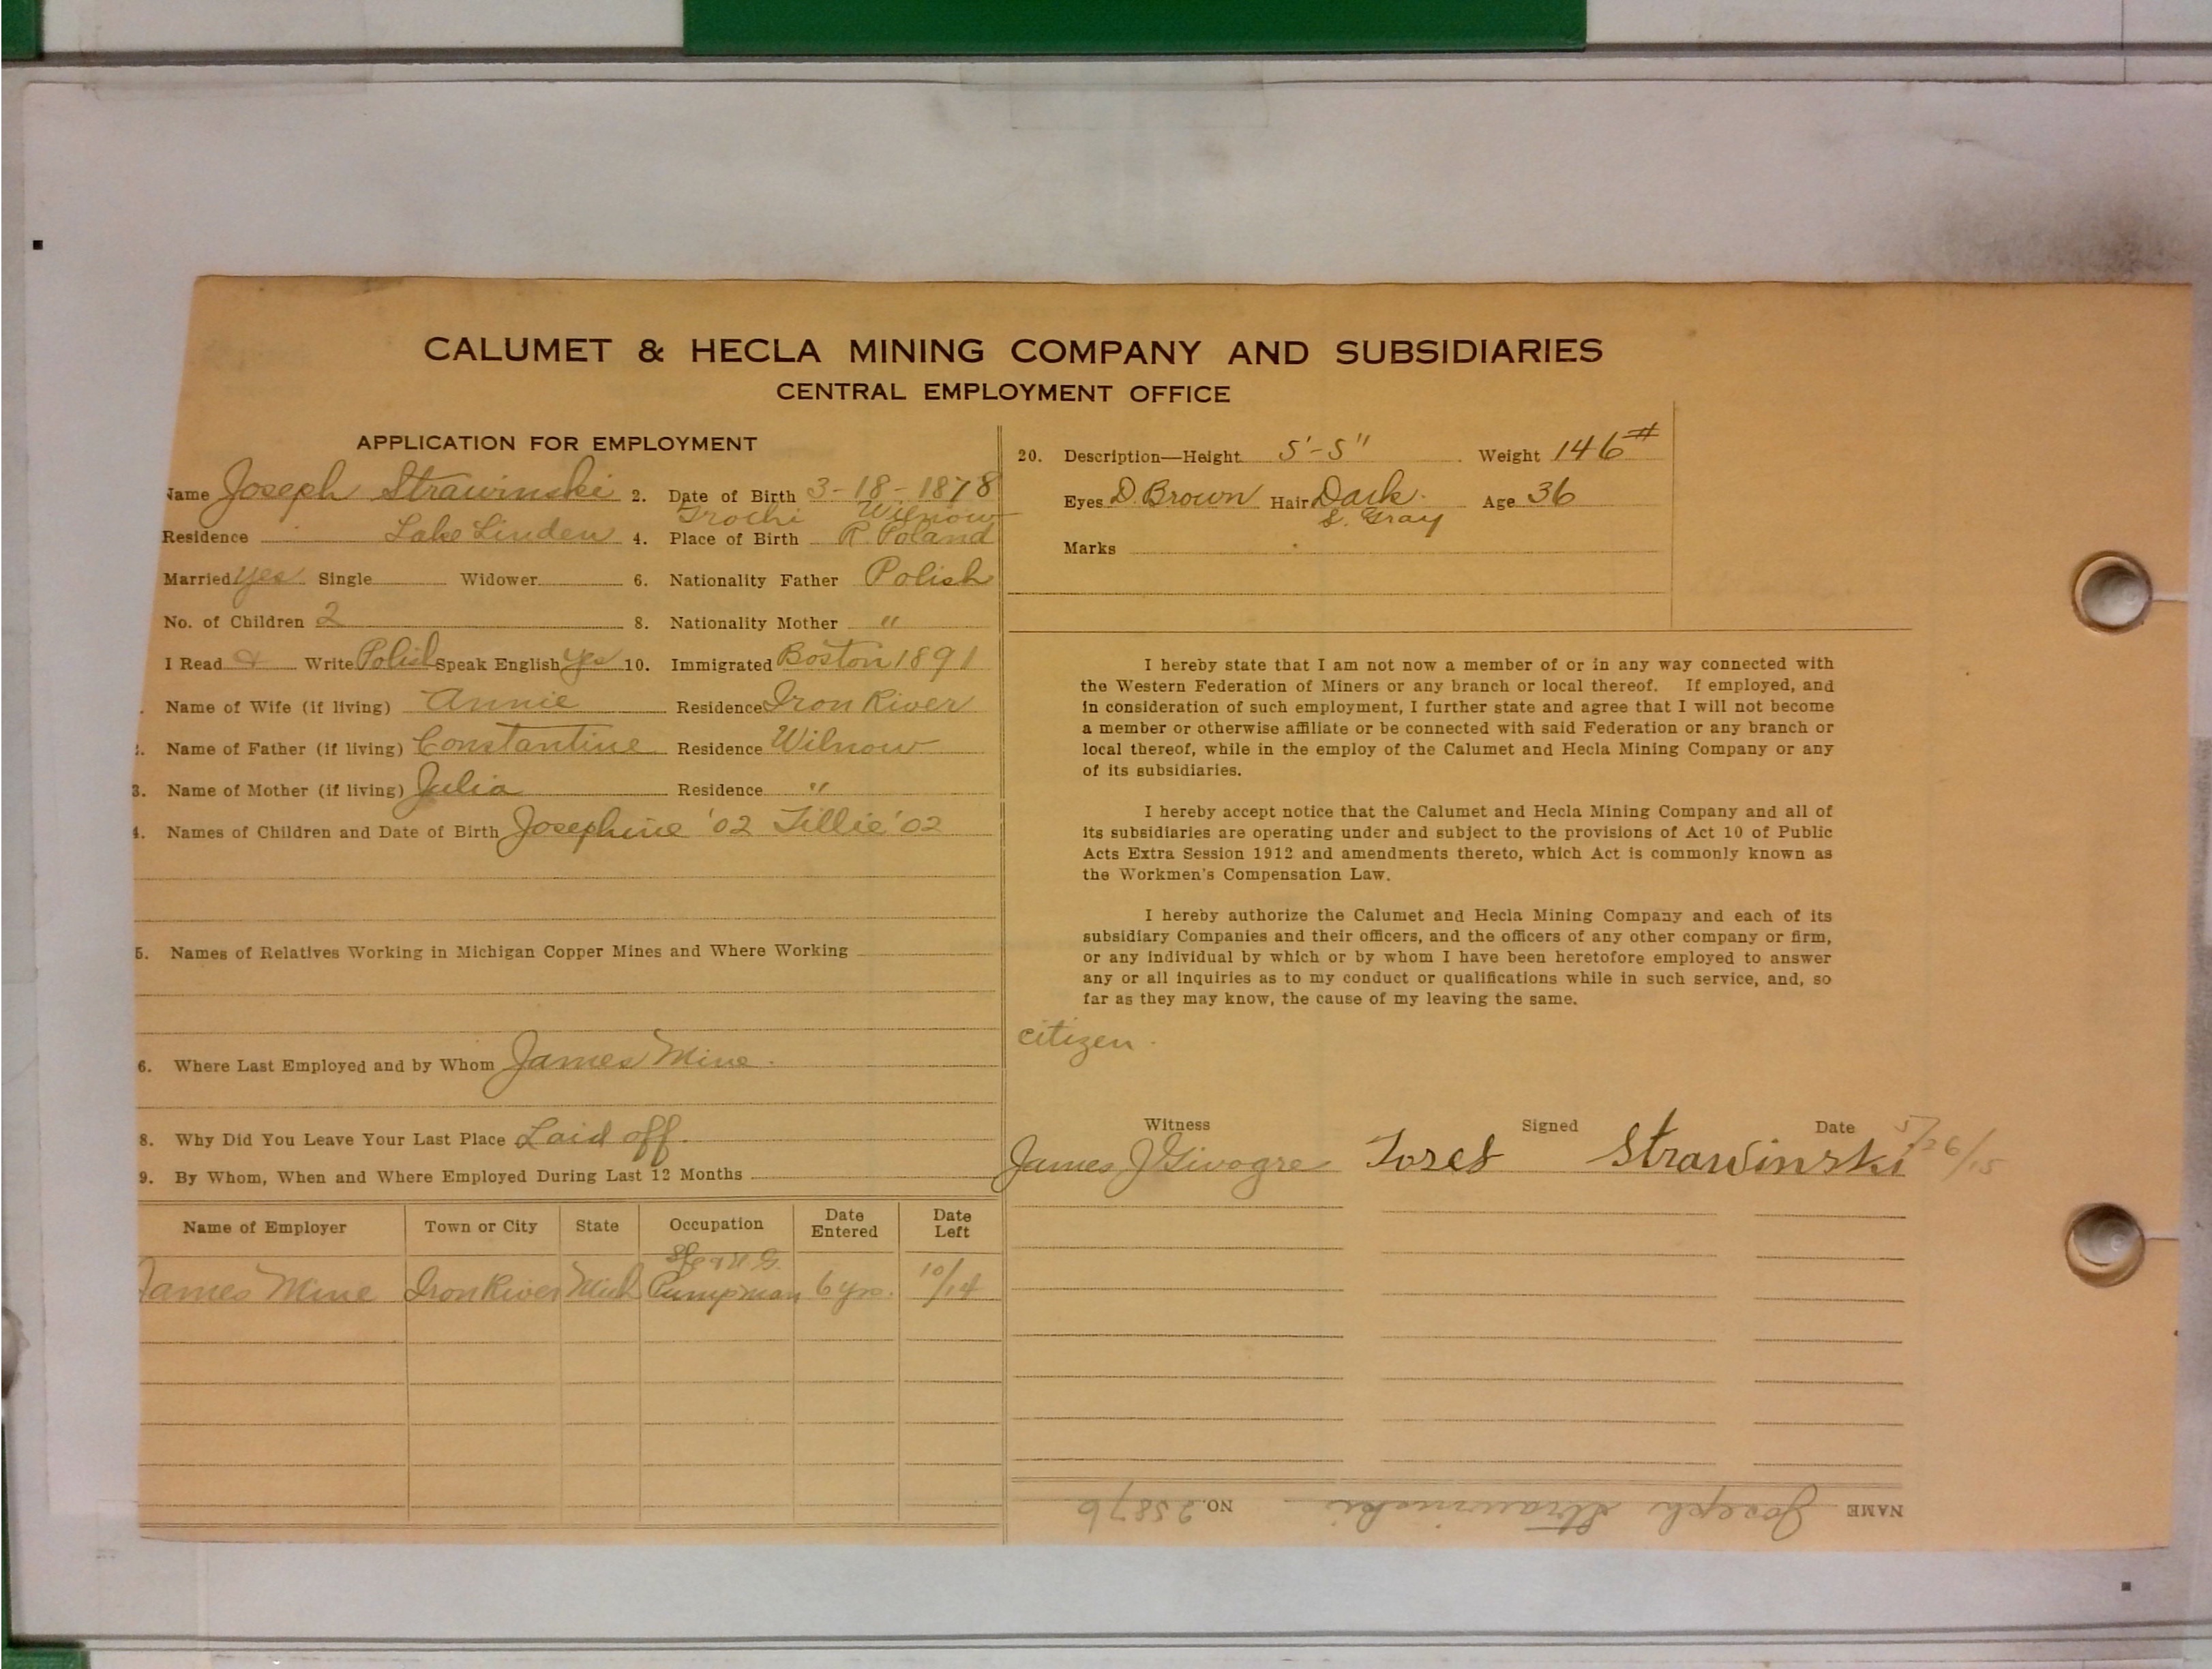 CALUMET & HECLA MINING COMPANY AND SUBSIDIARIES
CENTRAL EMPLOYMENT OFFICE
APPLICATION FOR EMPLOYMENT
Name Joseph Strawinski 2. Date of Birth 3-18-1878
Trochi Wilnow
Residence Lake Linden 4. Place of Birth R. Poland
Married yes Single Widower 6. Nationality Father Polish
No. of Children 2 8. Nationality Mother "
I Read & Write Polish Speak English yes 10. Immigrated Boston 1891
Name of Wife (if living) Annie Residence Iron River
Name of Father (if living) Constantine Residence Wilnow
3. Name of Mother (if living) Julia Residence "
4. Names of Children and Date of Birth Josephine '02 Tillie '02
5. Names of Relatives Working in Michigan Copper Mines and Where Working
6. Where Last Employed and by Whom James Mine.
8. Why Did You Leave Your Last Place Laid off.
9. By Whom, When and Where Employed During Last 12 Months
Name of Employer Town or City State Occupation Date Entered Date Left
James Mine Iron River Mich Pumpman 6 yrs. 10/14
20. Description—Height 5'-5" Weight 146#
Eyes D. Brown Hair Dark. Age 36
S. Gray
Marks
I hereby state that I am not now a member of or in any way connected with
the Western Federation of Miners or any branch or local thereof. If employed, and
in consideration of such employment, I further state and agree that I will not become
a member or otherwise affiliate or be connected with said Federation or any branch or
local thereof, while in the employ of the Calumet and Hecla Mining Company or any
of its subsidiaries.
I hereby accept notice that the Calumet and Hecla Mining Company and all of
its subsidiaries are operating under and subject to the provisions of Act 10 of Public
Acts Extra Session 1912 and amendments thereto, which Act is commonly known as
the Workmen's Compensation Law.
I hereby authorize the Calumet and Hecla Mining Company and each of its
subsidiary Companies and their officers, and the officers of any other company or firm,
or any individual by which or by whom I have been heretofore employed to answer
any or all inquiries as to my conduct or qualifications while in such service, and, so
far as they may know, the cause of my leaving the same.
citizen.
Witness Signed Date
James J Givogre Josef Strawinski 5/26/15
NAME Joseph Strawinski NO. 25876